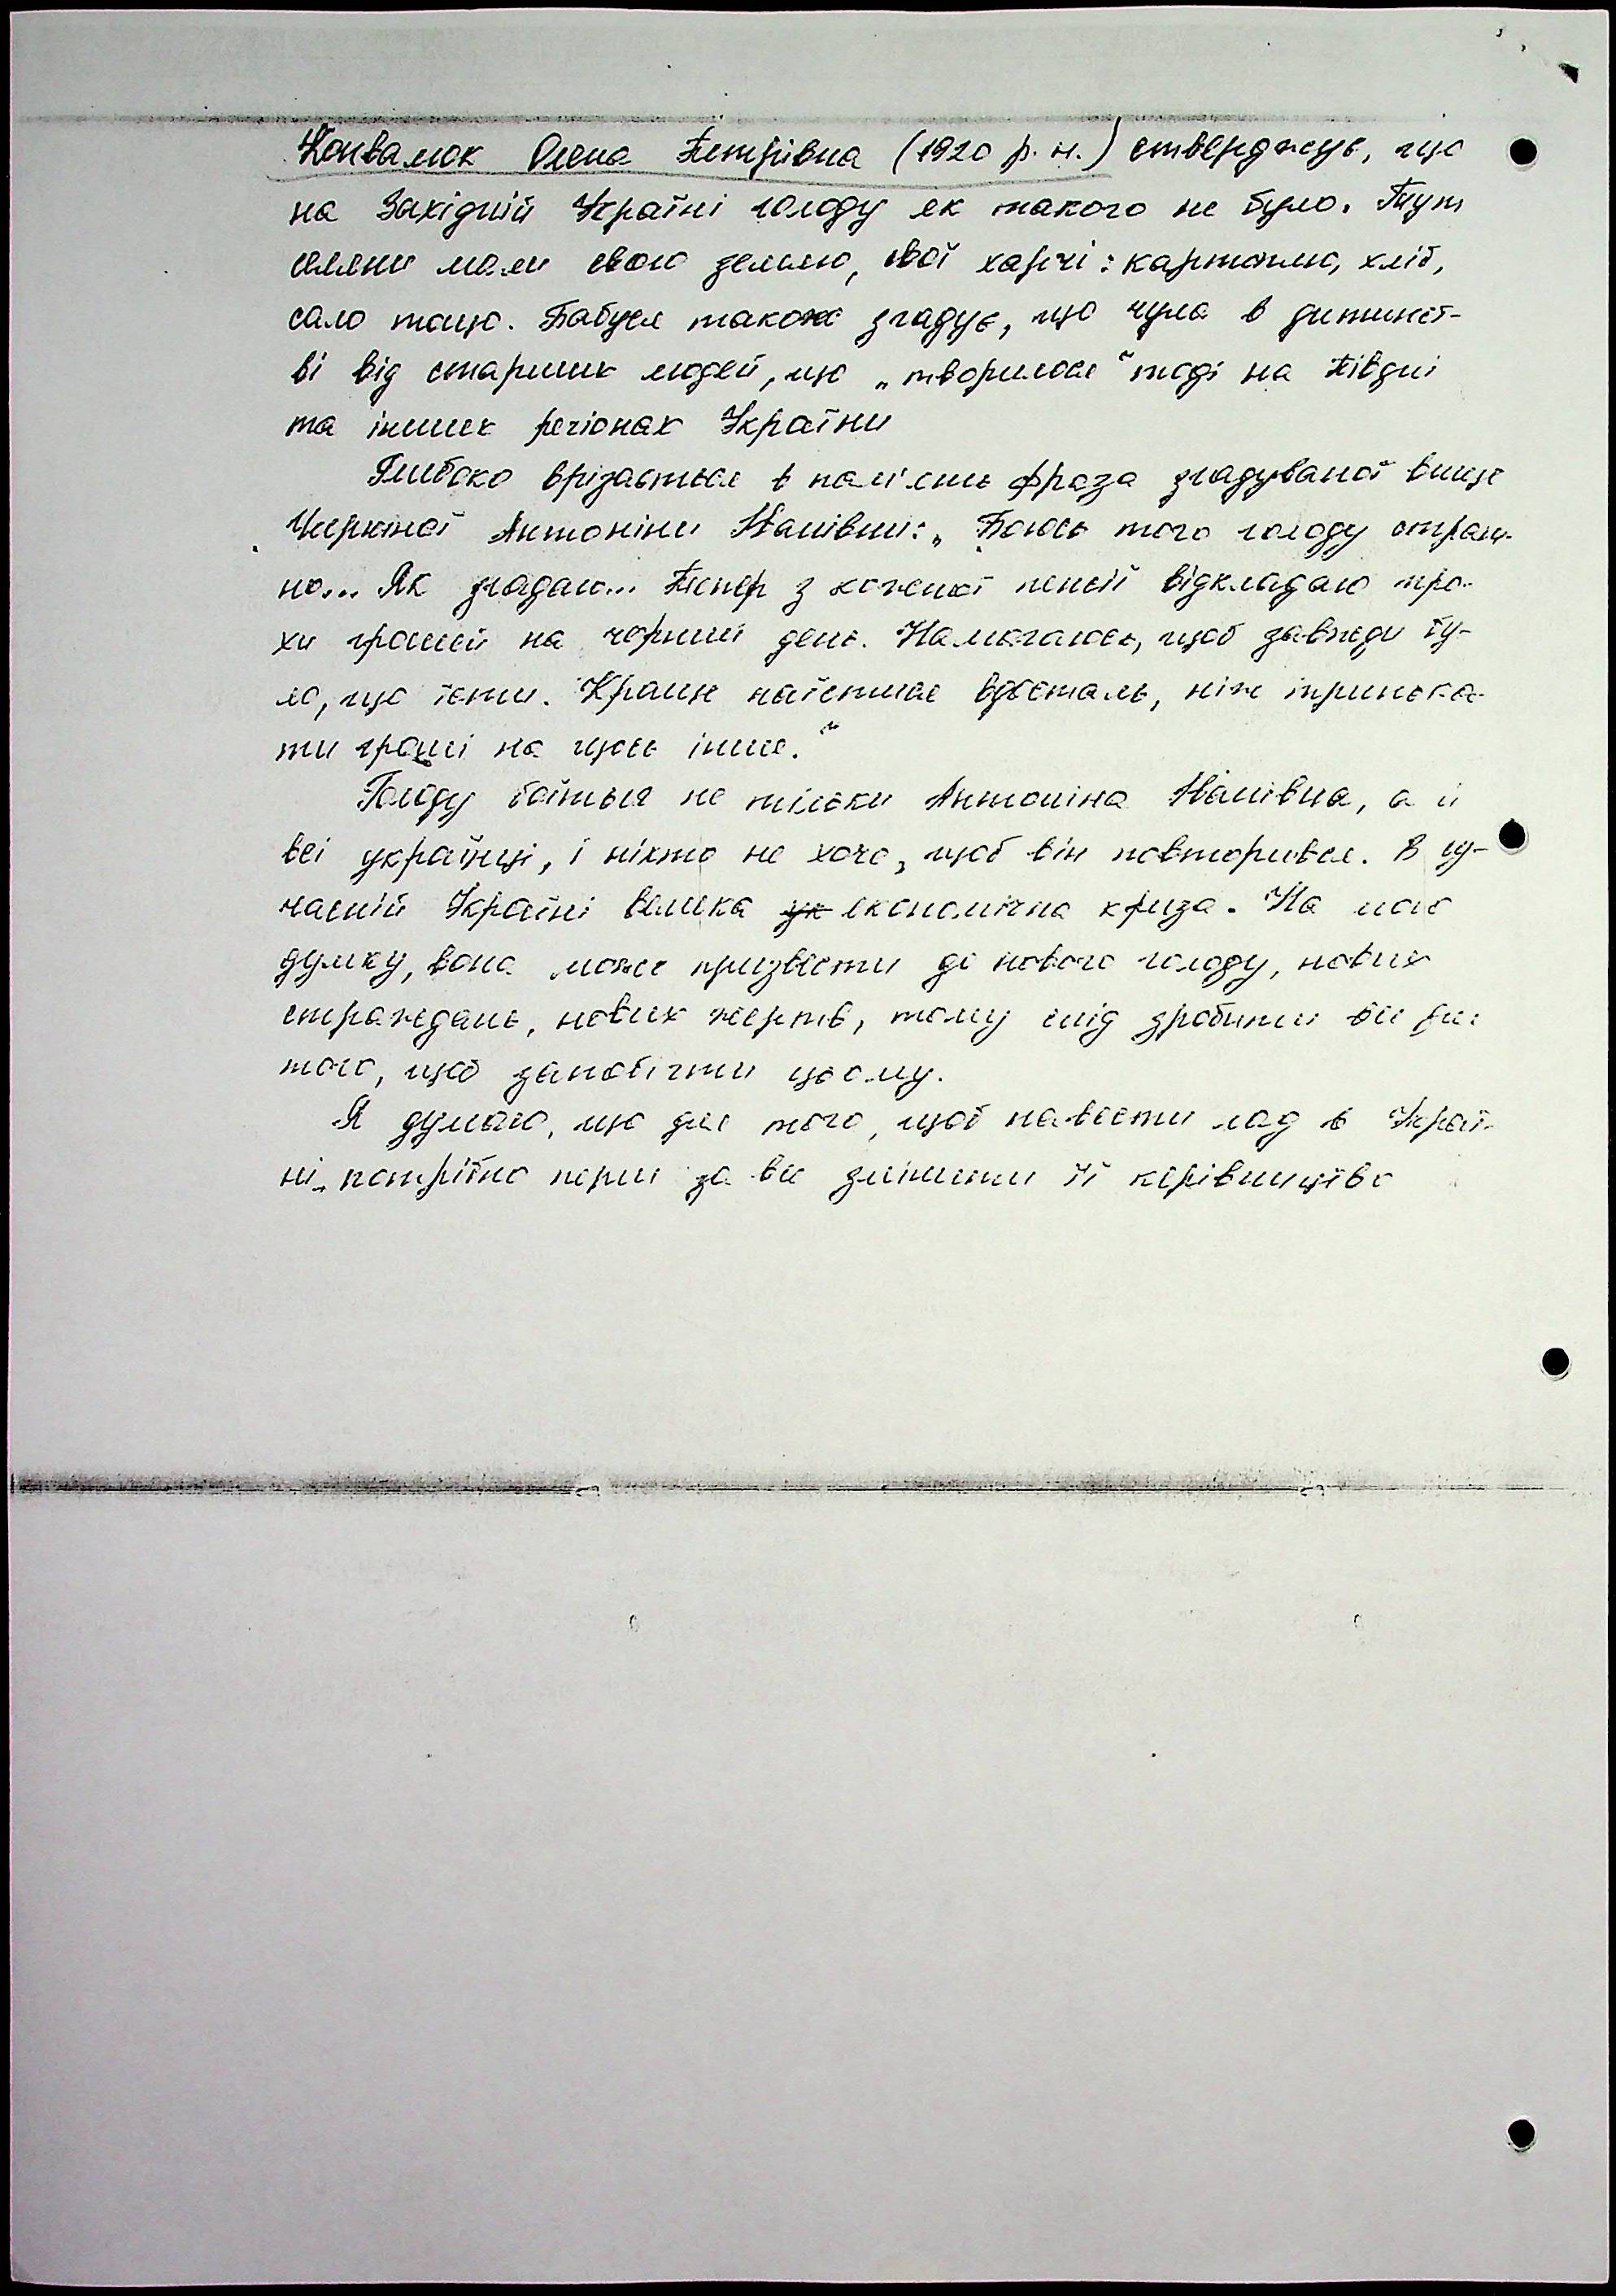 Конвалюк Олена Петрівна (1920 р. н.) стверджує, що
на Західній Україні голоду як такого не було. Тут
селяни мали свою землю, свої харчі: картоплю, хліб,
сало тощо. Бабуся також згадує, що чула в дитинст-
ві від старших людей, що „творилося" тоді на Півдні
та інших регіонах України
Глибоко врізається в пам'ять фраза згадуваної вище
Антоніни Іванівни: „Боюсь того голоду страш-
но... Як згадаю... Тепер з кожної пенсії відкладаю тро-
хи грошей на чорний день. Намагаюсь, щоб завжди бу-
ло, що їсти. Краще наїстися вдосталь, ніж тринька-
ти гроші на щось інше."
Голоду боїться не тільки Антоніна Іванівна, а й
всі українці, і ніхто не хоче, щоб він повторився. В су-
часній Україні велика економічна криза. На мою
думку, вона може призвести до нового голоду, нових
страждань, нових жертв, тому слід зробити все для
того, щоб запобігти цьому.
Я думаю, що для того, щоб навести лад в Украї-
ні, потрібно перш за все змінити її керівництво